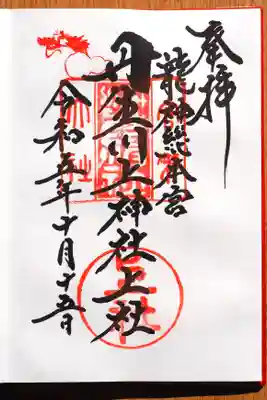 奉拝
龍神総本宮
丹生川上神社上社
令和五年十月十五日